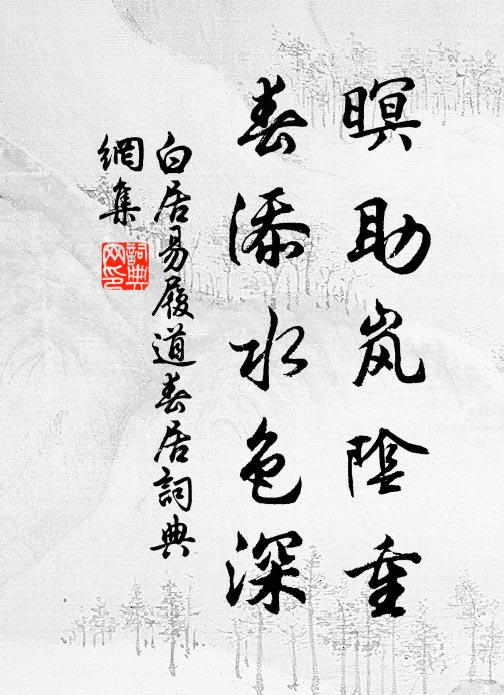 暝助岚陰重
春添水色深
白居易履道春居詞典
網集
詞典
网印